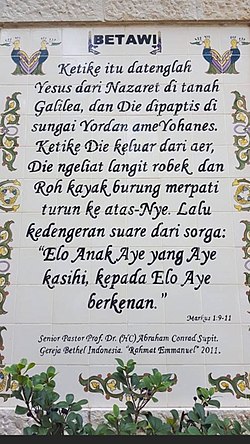 BETAWI
Ketike itu datenglah
Yesus dari Nazaret di tanah
Galilea, dan Die dipaptis di
sungai Yordan ameYohanes.
Ketike Die keluar dari aer,
Die ngeliat langit robek dan
Roh kayak burung merpati
turun ke atas-Nye. Lalu
kedengeran suare dari sorga:
“Elo Anak Aye yang Aye
kasihi, kepada Elo Aye
berkenan.”
Markus 1:9-11
Senior Pastor Prof. Dr. (HC) Abraham Conrad Supit.
Gereja Bethel Indonesia. "Rahmat Emmanuel" 2011.